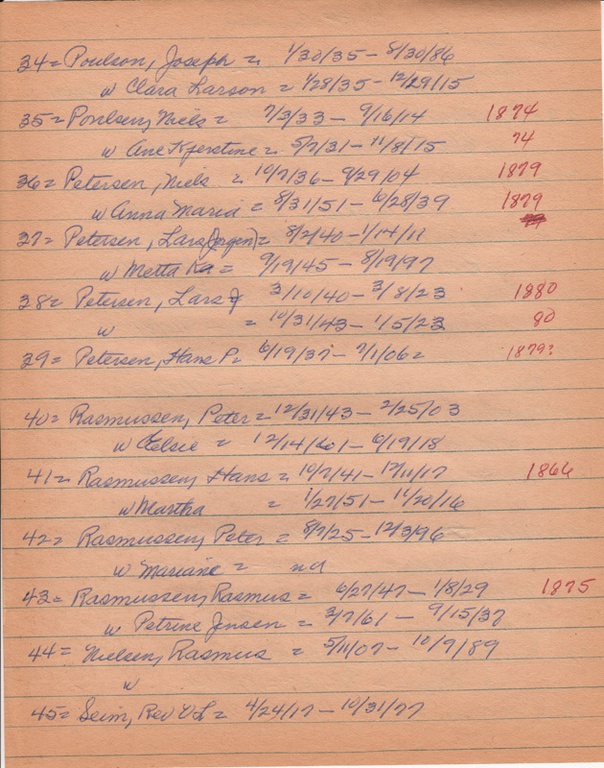 34= Poulson, Joseph = 1/30/35 - 8/30/86
w Clara Larson = 1/28/35 - 12/29/15
35= Poulsen, Niels = 7/3/33 - 9/16/14 1874
w Ane Kjerstine = 5/7/31 - 11/8/15 74
36= Petersen, Niels = 10/7/36 - 9/29/04 1879
w Anna Maria = 8/31/51 - 6/28/39 1879
37= Petersen, Lars (Jorgen) = 8/2/40 - 1/14/11
w Metta Ka = 9/19/45 - 8/19/97
38= Petersen, Lars J 3/10/40 - 3/8/23 1880
w = 10/31/43 - 1/5/23 80
39= Petersen, Hans P = 6/19/37 - 7/1/06 = 1879?
40= Rasmussen, Peter = 12/31/43 - 2/25/03
w Elsie = 12/14/ - 6/19/18
41= Rasmussen, Hans = 10/7/41 - 11/17 1866
w Martha = 1/27/51 - 11/20/16
42= Rasmussen, Peter = 8/7/25 - 12/3/96
w Mariane = nd
43= Rasmussen, Rasmus = 6/27/47 - 1/8/29 1875
w Petrine Jensen = 3/7/61 - 9/15/37
44= Nielsen, Rasmus = 5/11/07 - 10/9/89
w
45= Seim, Rev O L = 4/24/17 - 10/31/77